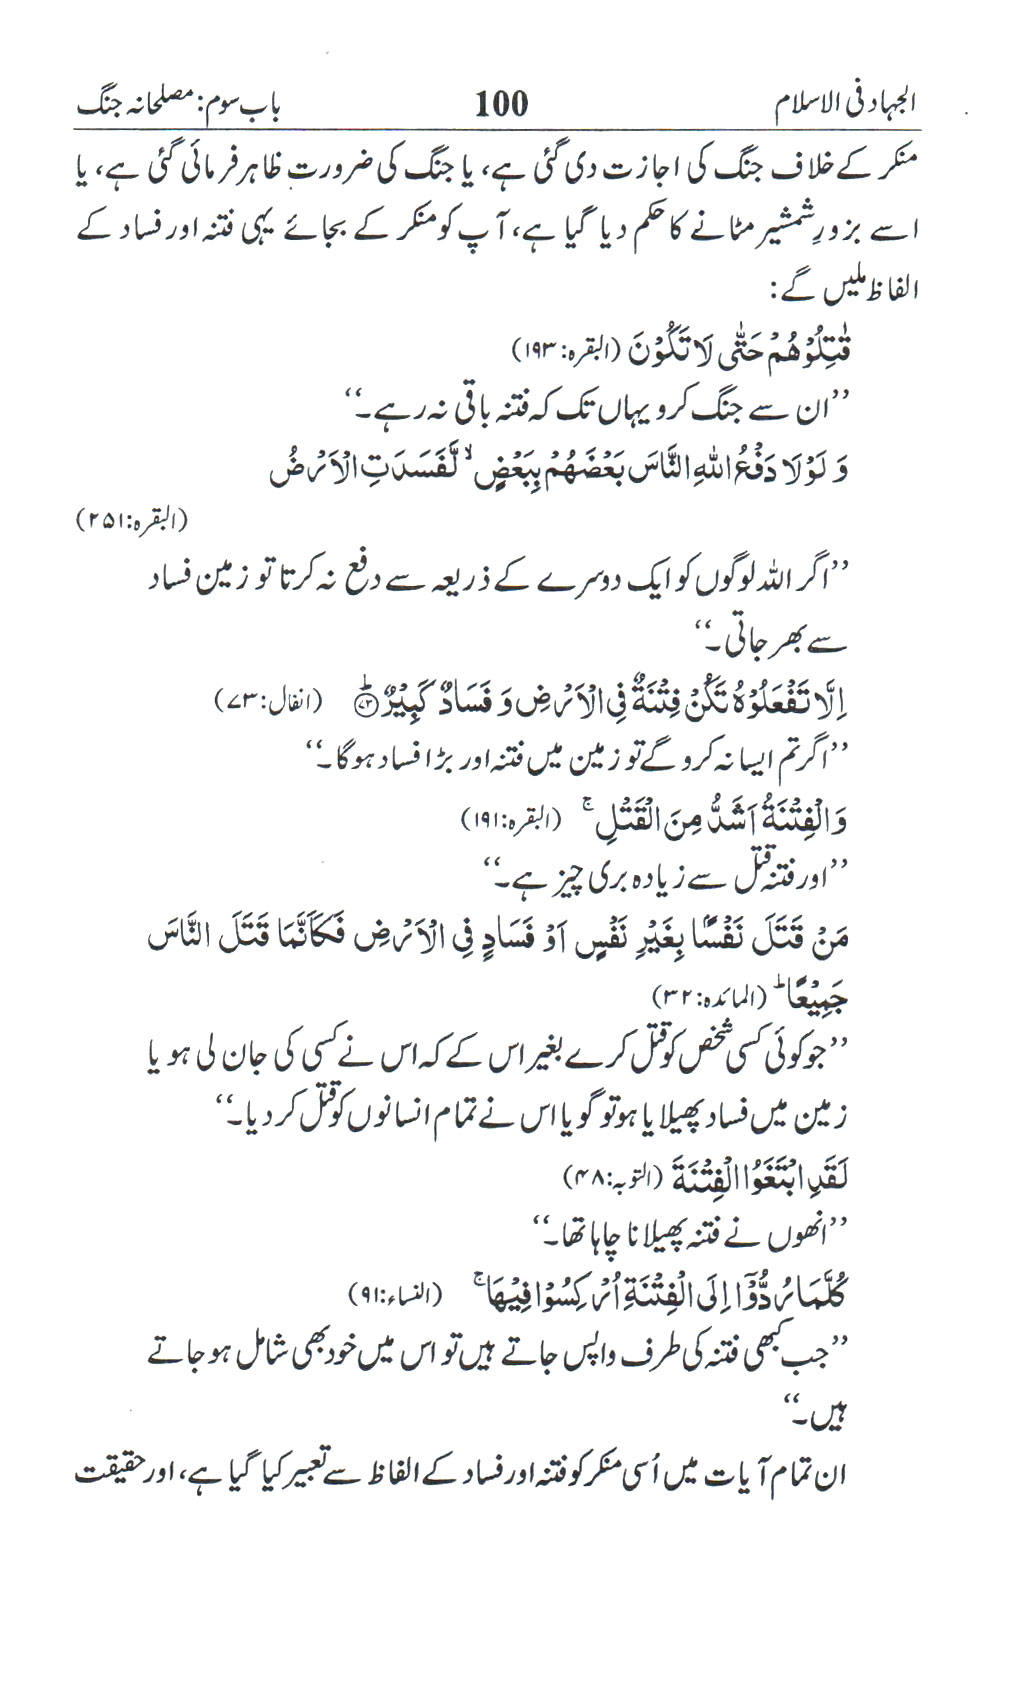 الجہاد فی الاسلام 100 باب سوم: مصلحانہ جنگ
منکر کے خلاف جنگ کی اجازت دی گئی ہے، یا جنگ کی ضرورت ظاہر فرمائی گئی ہے، یا
اسے بزورِ شمشیر مٹانے کا حکم دیا گیا ہے، آپ کو منکر کے بجائے یہی فتنہ اور فساد کے
الفاظ ملیں گے:
قٰتِلُوْهُمْ حَتّٰى لَا تَكُوْنَ (البقرہ: ۱۹۳)
’’ان سے جنگ کرو یہاں تک کہ فتنہ باقی نہ رہے۔‘‘
وَ لَوْ لَا دَفْعُ اللّٰهِ النَّاسَ بَعْضَهُمْ بِبَعْضٍ ۙ لَّفَسَدَتِ الْاَرْضُ
(البقرہ: ۲۵۱)
’’اگر اللہ لوگوں کو ایک دوسرے کے ذریعہ سے دفع نہ کرتا تو زمین فساد
سے بھر جاتی۔‘‘
اِلَّا تَفْعَلُوْهُ تَكُنْ فِتْنَةٌ فِی الْاَرْضِ وَ فَسَادٌ كَبِیْرٌ ؕ۝۷۳ (انفال: ۷۳)
’’اگر تم ایسا نہ کرو گے تو زمین میں فتنہ اور بڑا فساد ہوگا۔‘‘
وَ الْفِتْنَةُ اَشَدُّ مِنَ الْقَتْلِ ۚ (البقرہ: ۱۹۱)
’’اور فتنہ قتل سے زیادہ بری چیز ہے۔‘‘
مَنْ قَتَلَ نَفْسًا بِغَیْرِ نَفْسٍ اَوْ فَسَادٍ فِی الْاَرْضِ فَكَاَنَّمَا قَتَلَ النَّاسَ
جَمِیْعًا ؕ (المائدہ: ۳۲)
’’جو کوئی کسی شخص کو قتل کرے بغیر اس کے کہ اس نے کسی کی جان لی ہو یا
زمین میں فساد پھیلایا ہو تو گویا اس نے تمام انسانوں کو قتل کر دیا۔‘‘
لَقَدِ ابْتَغَوُا الْفِتْنَةَ (التوبہ: ۴۸)
’’انھوں نے فتنہ پھیلانا چاہا تھا۔‘‘
كُلَّمَا رُدُّوْۤا اِلَى الْفِتْنَةِ اُرْكِسُوْا فِیْهَا ۚ (النساء: ۹۱)
’’جب کبھی فتنہ کی طرف واپس جاتے ہیں تو اس میں خود بھی شامل ہو جاتے
ہیں۔‘‘
ان تمام آیات میں اُسی منکر کو فتنہ اور فساد کے الفاظ سے تعبیر کیا گیا ہے، اور حقیقت